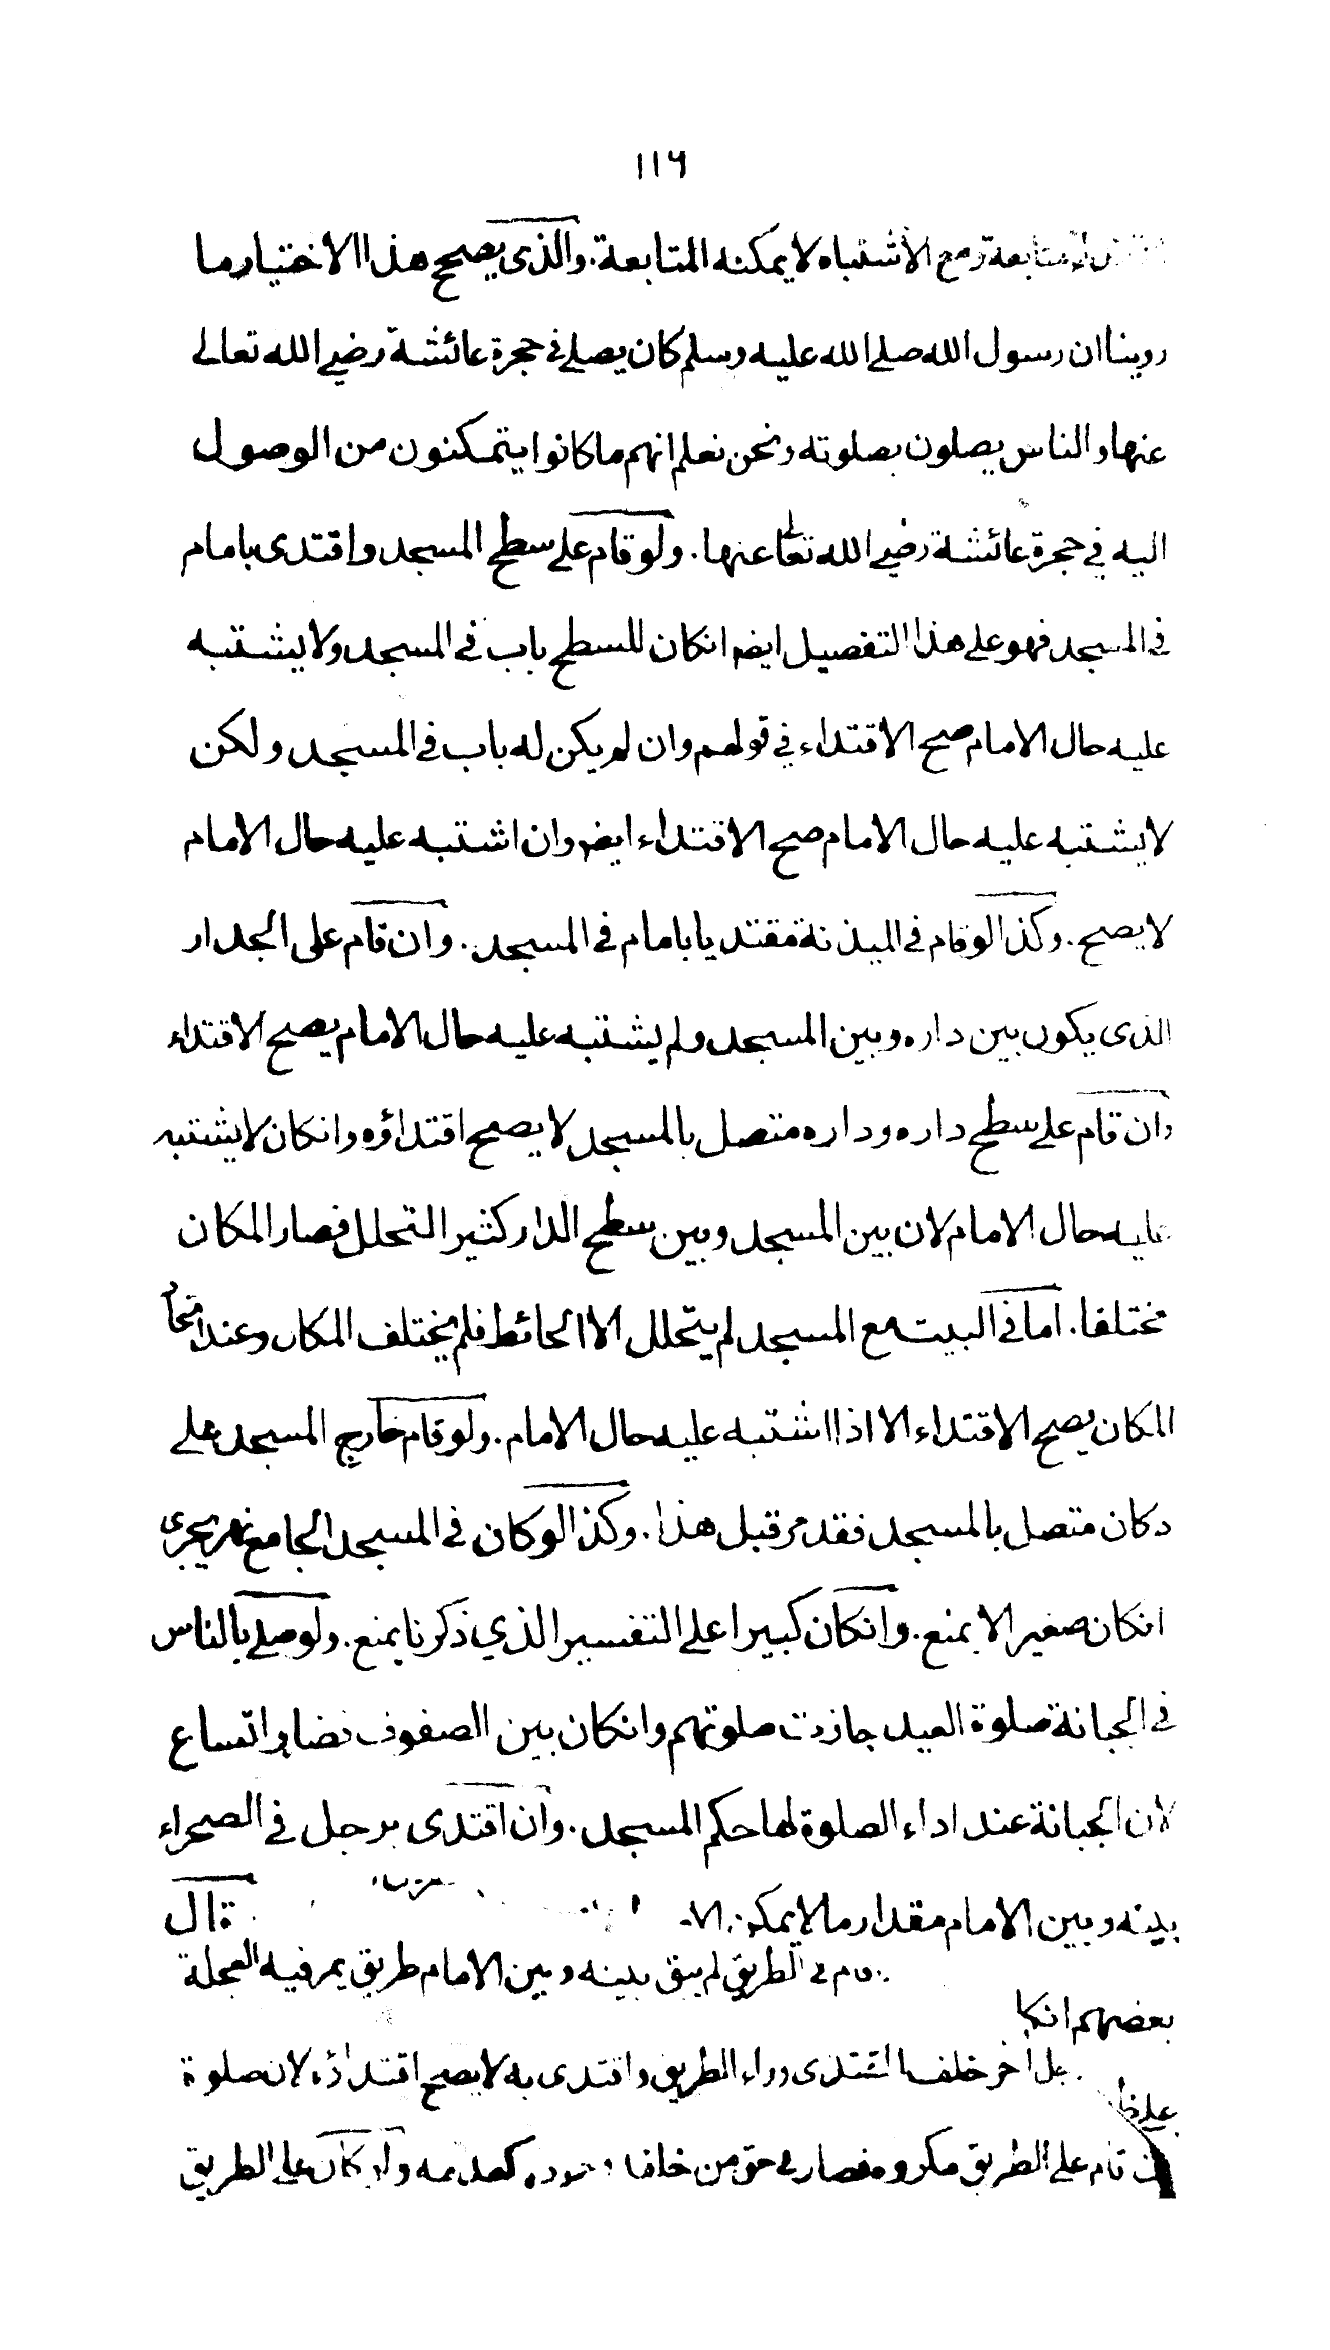 ١١٦
المتابعة ومع الاشتباه لا يمكنه المتابعة. والذى يصحح هذا الاختيار ما
روينا ان رسول الله صلى الله عليه وسلم كان يصلى في حجرة عائشة رضي الله تعالى
عنها والناس يصلون بصلوته ونحن نعلم انهم ما كانوا يتمكنون من الوصول
اليه في حجرة عائشة رضي الله تعالى عنها. ولو قام على سطح المسجد واقتدى بامام
في المسجد فهو على هذا التفصيل ايضا انكان للسطح باب في المسجد ولا يشتبه
عليه حال الامام صح الاقتداء في قولهم وان لم يكن له باب في المسجد ولكن
لا يشتبه عليه حال الامام صح الاقتداء ايضا وان اشتبه عليه حال الامام
لا يصح. وكذا لو قام في الميذنة مقتديا بامام في المسجد. وان قام على الجدار
الذى يكون بين داره وبين المسجد ولم يشتبه عليه حال الامام يصح الاقتداء
وان قام على سطح داره وداره متصل بالمسجد لا يصح اقتداؤه وانكان لا يشتبه
عليه حال الامام لان بين المسجد وبين سطح الدار كثير التخلل فصار المكان
مختلفا. اما في البيت مع المسجد لم يتخلل الا الحائط فلم يختلف المكان وعند اتحاد
المكان يصح الاقتداء الا اذا اشتبه عليه حال الامام. ولو قام خارج المسجد على
دكان متصل بالمسجد فقد مر قبل هذا. وكذا لو كان في المسجد الجامع نهر يجرى
انكان صغيرا لا يمنع. وانكان كبيرا على التفسير الذي ذكرنا يمنع. ولو صلى بالناس
في الجبانة صلوة العيد جازت صلوتهم وانكان بين الصفوف فضاء واتساع
لان الجبانة عند اداء الصلوة لها حكم المسجد. وان اقتدى برجل في الصحراء
بينه وبين الامام مقدار ما لا يمكن قال
قام في الطريق لم يبق بينه وبين الامام طريق يمر فيه العجلة
بعضهم انكا
اخر خلف المقتدى وراء الطريق واقتدى به لا يصح اقتداؤه لان صلوة
على
قام على الطريق مكروه فصار في حق من خلفه وجوده كعدمه ولو كان على الطريق